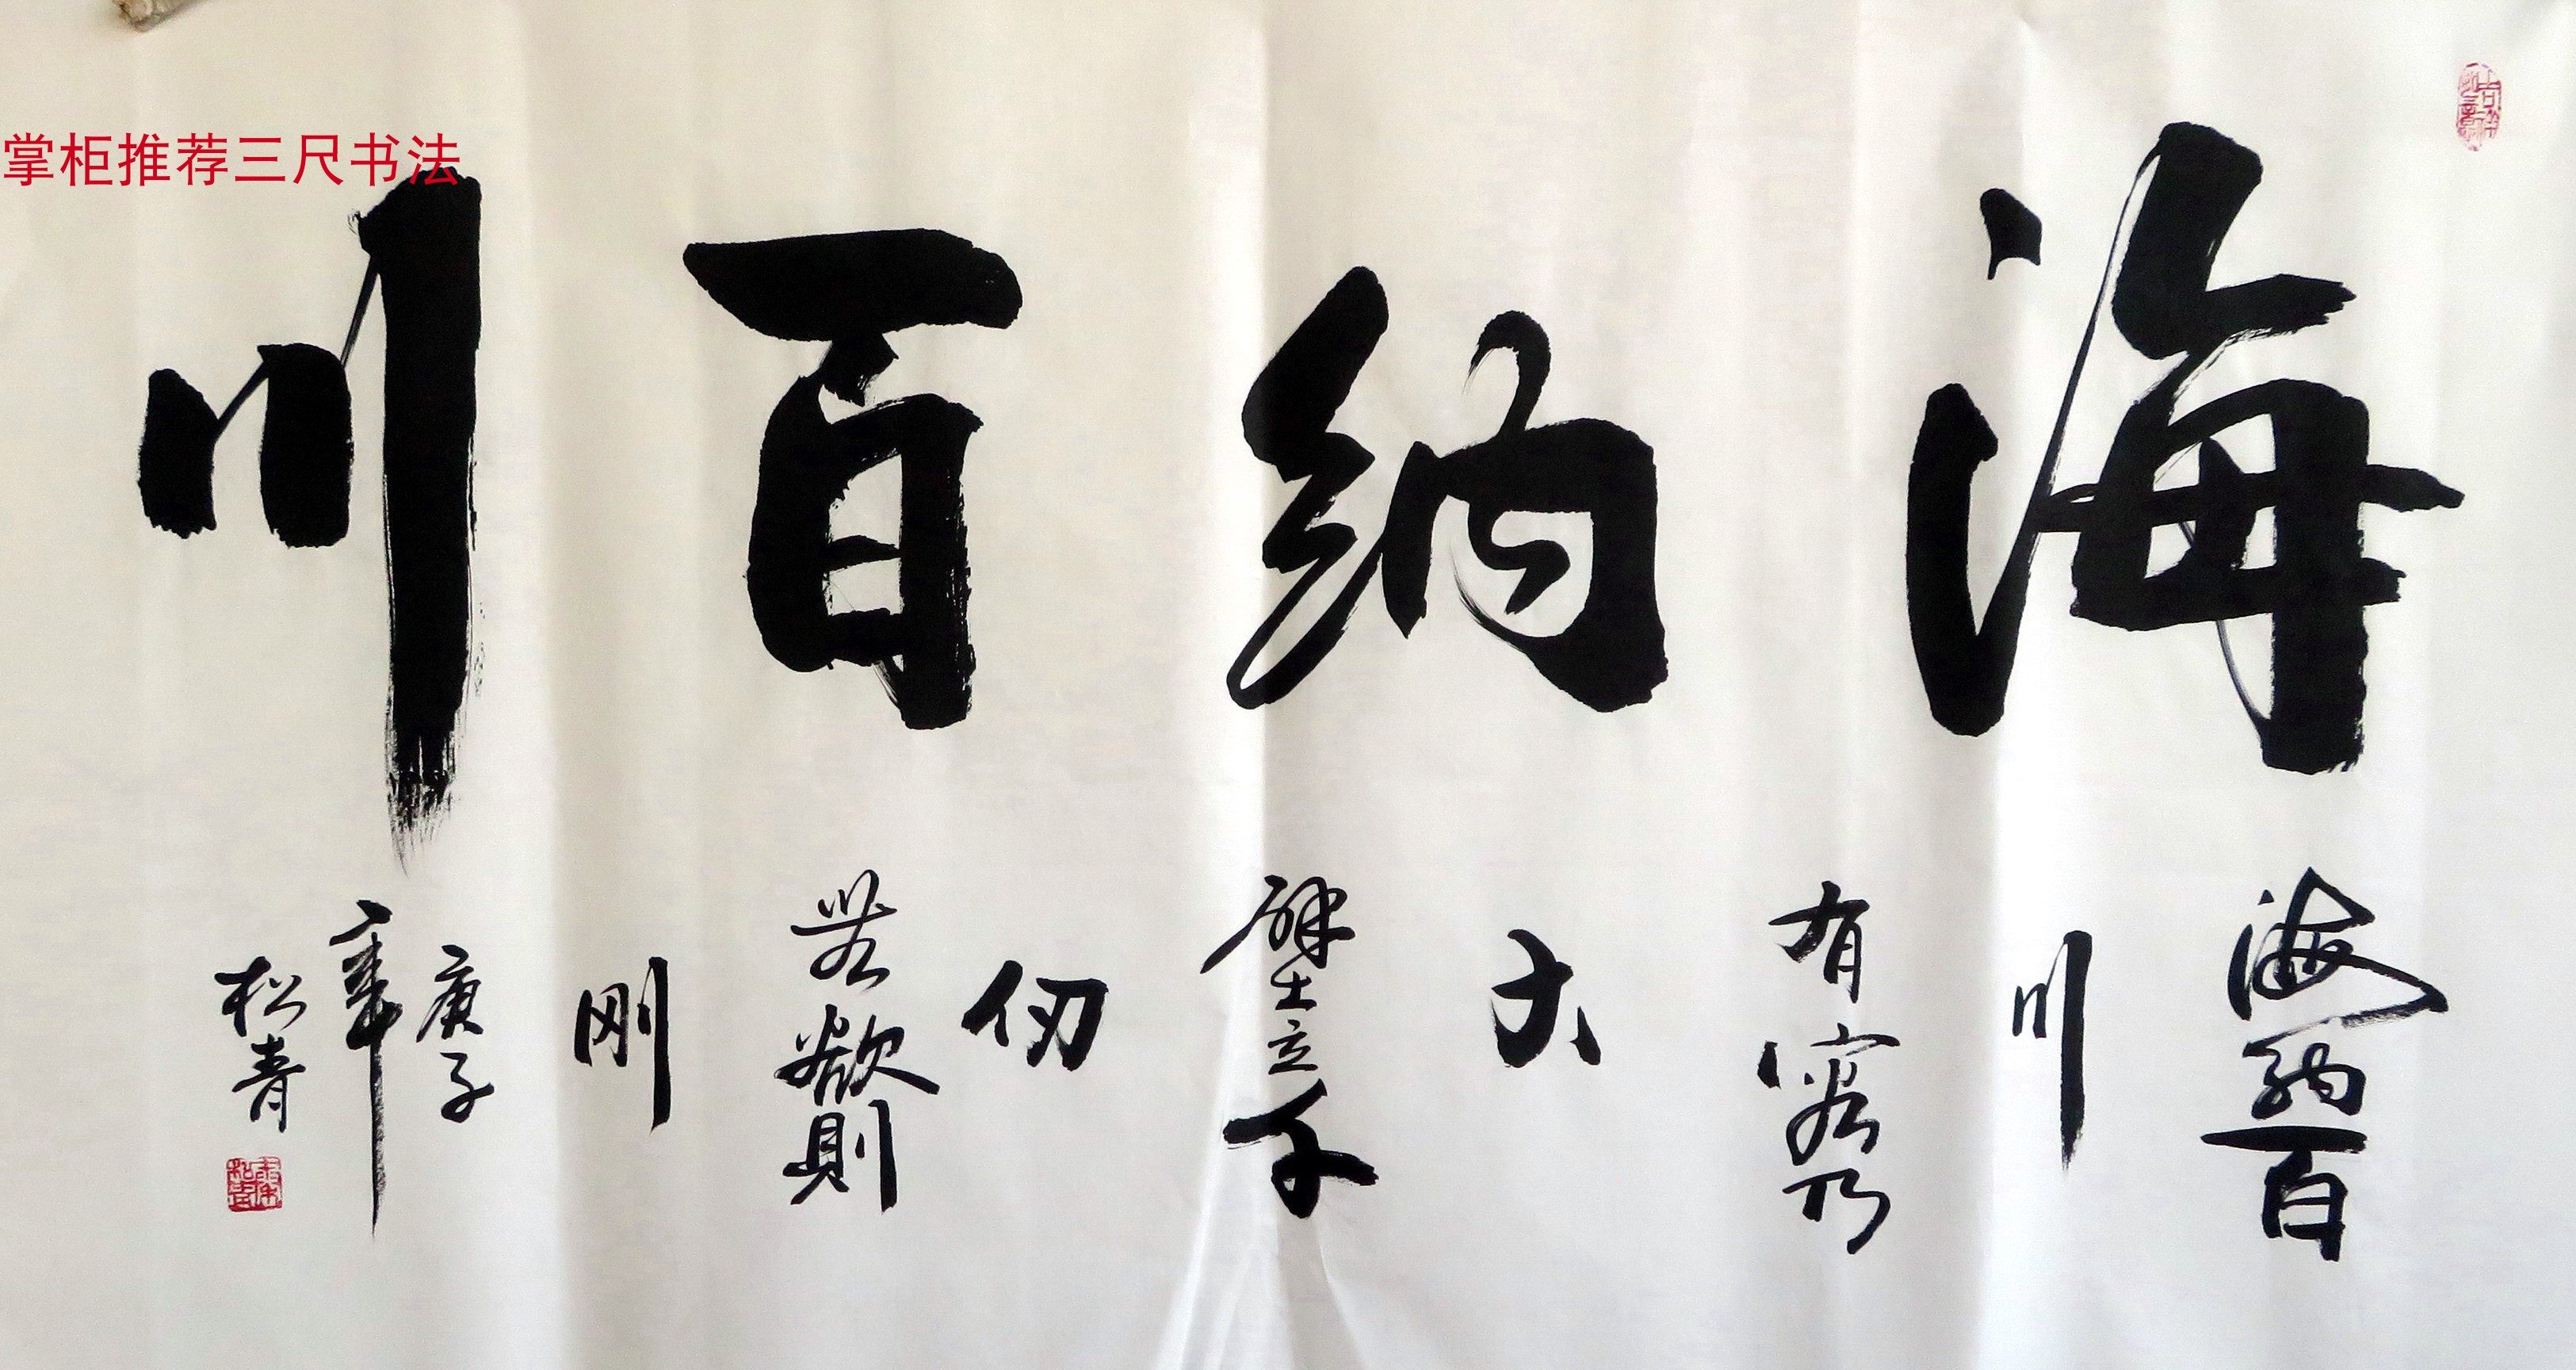 掌柜推荐三尺书法
海纳百川
海纳百
川
有容乃
大
壁立千
仞
无欲则
刚
庚子
年
松青